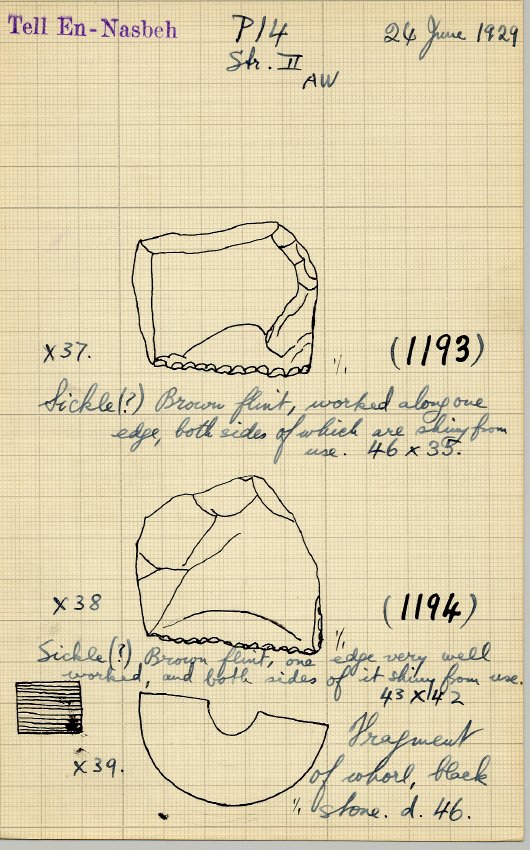 Tell En-Nasbeh
P14
24 June 1929
Str. II
AW
x37.
1/1
(1193)
Sickle(?) Brown flint, worked along one
edge, both sides of which are shiny from
use. 46 x 35.
x38
1/1
(1194)
Sickle(?) Brown flint, one edge very well
worked, and both sides of it shiny from use.
43 x 42
x39.
1/1
Fragment
of whorl, black
stone. d. 46.